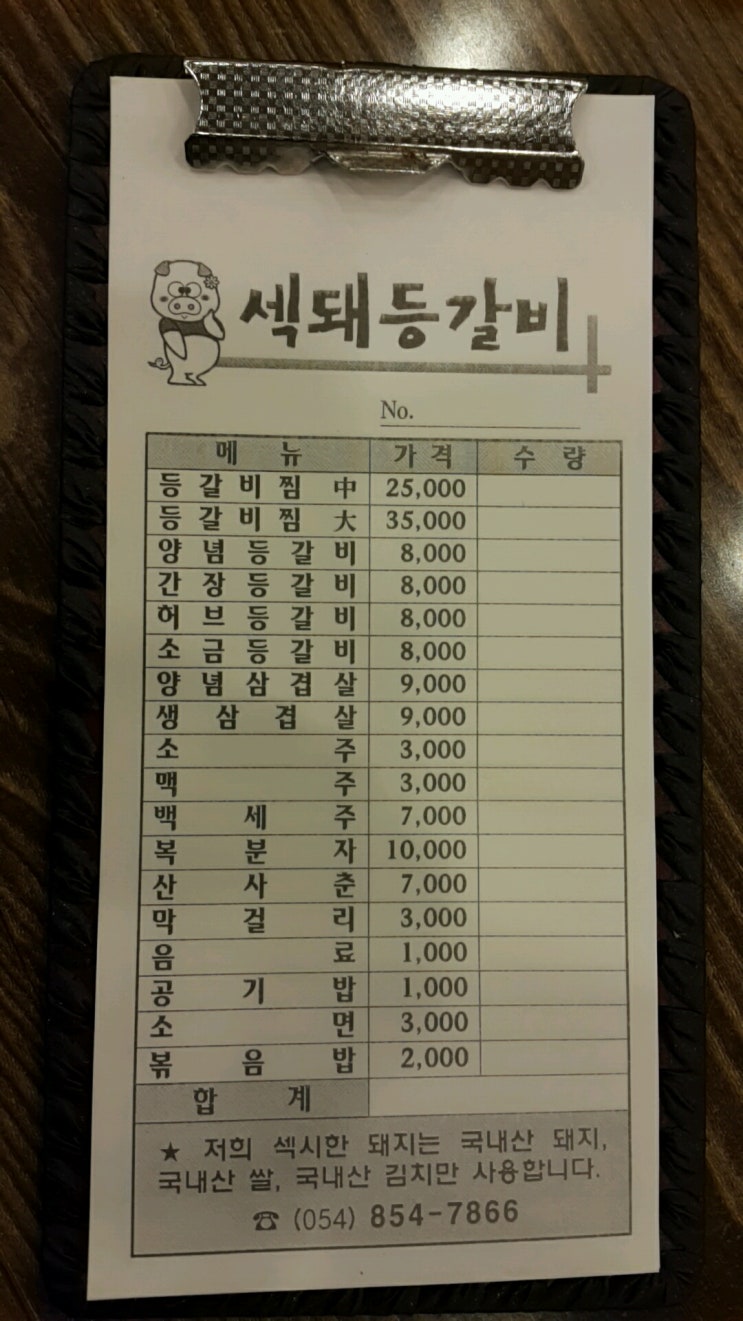 섹돼등갈비
No.
메뉴 가격 수량
등갈비찜 中 25,000
등갈비찜 大 35,000
양념등갈비 8,000
간장등갈비 8,000
허브등갈비 8,000
소금등갈비 8,000
양념삼겹살 9,000
생삼겹살 9,000
소주 3,000
맥주 3,000
백세주 7,000
복분자 10,000
산사춘 7,000
막걸리 3,000
음료 1,000
공기밥 1,000
소면 3,000
볶음밥 2,000
합계
★ 저희 섹시한 돼지는 국내산 돼지,
국내산 쌀, 국내산 김치만 사용합니다.
☎ (054) 854-7866